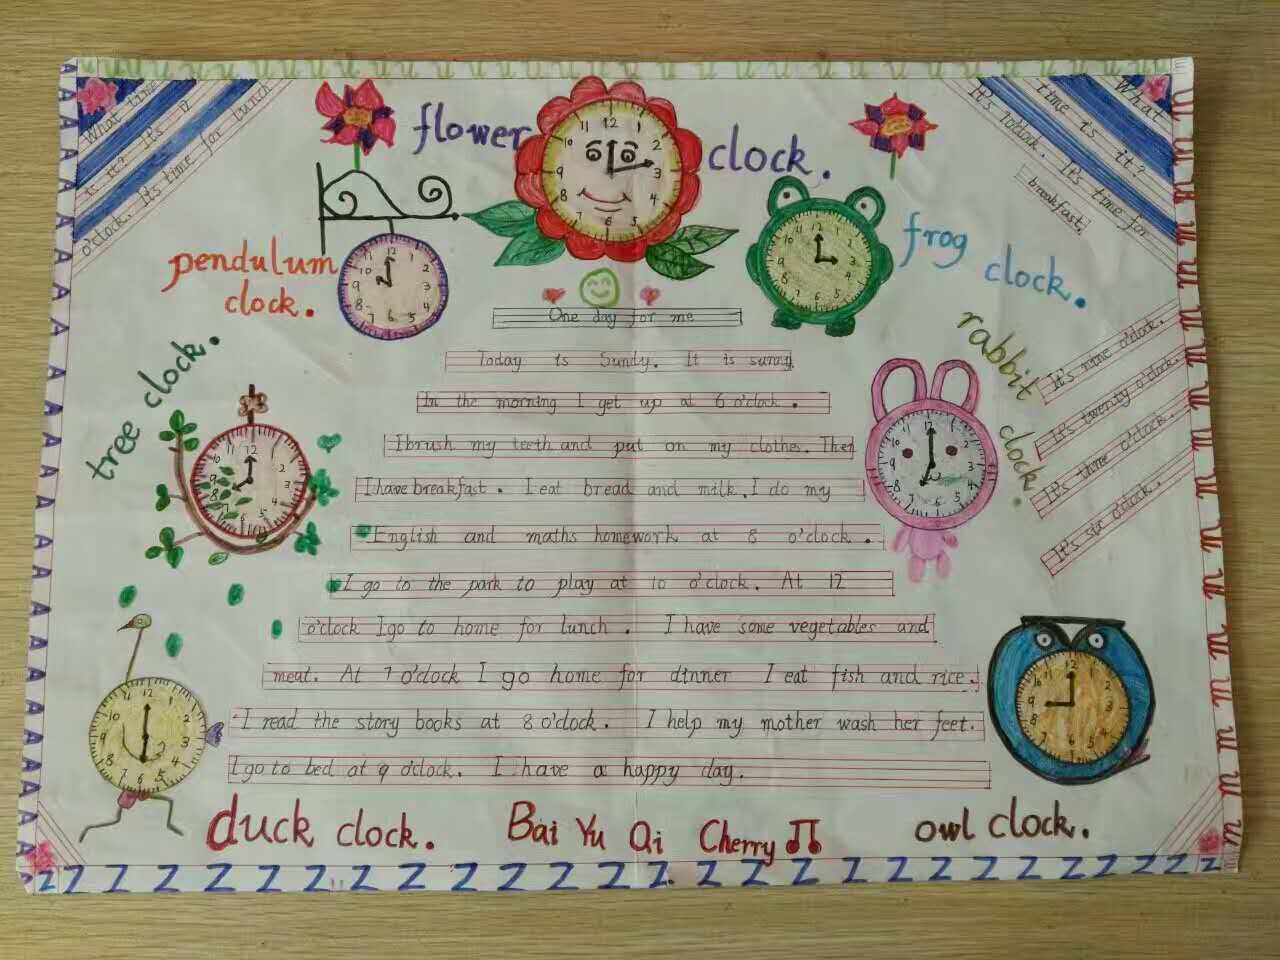 flower clock.
What time
is it? It's 12
o'clock. It's time for lunch
What
time is
it?
It's 7o'clock. It's time for
breakfast.
pendulum
clock.
frog clock.
One day for me
Today is Sundy. It is sunny.
In the morning I get up at 6 o'clock.
I brush my teeth and put on my clothes. Then
I have breakfast. I eat bread and milk. I do my
English and maths homework at 8 o'clock.
I go to the park to play at 10 o'clock. At 12
o'clock I go to home for lunch. I have some vegetables and
meat. At 7 o'clock I go home for dinner I eat fish and rice.
I read the story books at 8 o'clock. I help my mother wash her feet.
I go to bed at 9 o'clock. I have a happy day.
tree clock.
rabbit clock.
It's nine o'clock.
It's twenty o'clock.
It's three o'clock.
It's six o'clock.
duck clock.
Bai Yu Qi Cherry
owl clock.